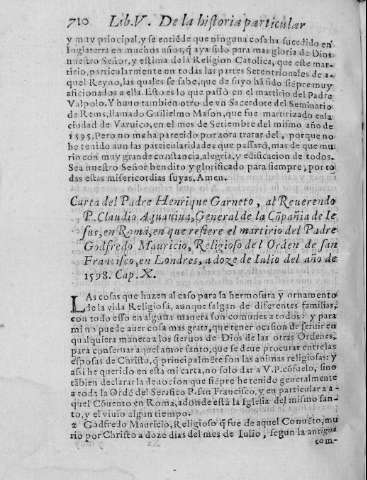 710 Lib. V. De la historia particular
y muy principal, y se entiẽde que ninguna cosa ha sucedido en
Inglaterra en muchos años, q̃ aya sido para mas gloria de Dios
nuestro Señor, y estima de la Religion Catolica, que este mar-
tirio, particularmente en todas las partes Setentrionales de a-
quel Reyno, las quales se sabe, que de ya hã sido siẽpre muy
aficionados a ella. Esto es lo que passò en el martirio del Padre
Valpolo. Y huuo tambien otro de vn Sacerdote del Seminario
de Rems, llamado Guillelmo Mason, que fue martirizado en la
ciudad de Varuico, en el mes de Setiembre del mismo año de
1595. Pero no me ha parecido por aora tratar del, porque no
he tenido aun las particularidades que passarõ, mas de que mu-
rio con muy grande constancia, alegria, y edificacion de todos.
Sea nuestro Señor bendito y glorificado para siempre, por to-
das estas misericordias suyas. Amen.
Carta del Padre Henrique Garneto, al Reuerendo
P. Claudio Aquauiua, General de la Cõpañia de Ie
sus, en Roma, en que refiere el martirio del Padre
Godfredo Mauricio, Religioso del Orden de san
Francisco, en Londres, a doze de Iulio del año de
1598. Cap. X.
LAs cosas que hazen al caso para la hermosura y ornamento
de la vida Religiosa, aunque salgan de diferentes familias,
con todo esso en alguna manera son comunes a todos: y para
mi no puede auer cosa mas grata, que tener ocasion de seruir en
qualquiera manera a los sieruos de Dios de las otras Ordenes,
para conseruar aquel amor santo, que se deue procurar entre las
esposas de Christo, q̃ principalmẽte son las animas religiosas: y
assi he querido en esta mi carta, no solo dar a V.P. cõsuelo, sino
tãbien declarar la deuocion que siẽpre he tenido generalmente
a toda la Ordẽ del Serafico P. san Francisco, y en particular a a-
quel Cõuento en Roma, adonde está la Iglesia del mismo san-
to, y el viuio algun tiempo.
2 Godfredo Mauricio, Religioso q̃ fue de aquel Conuẽto, mu
rio por Christo a doze dias del mes de Iulio, segun la antigua
com-